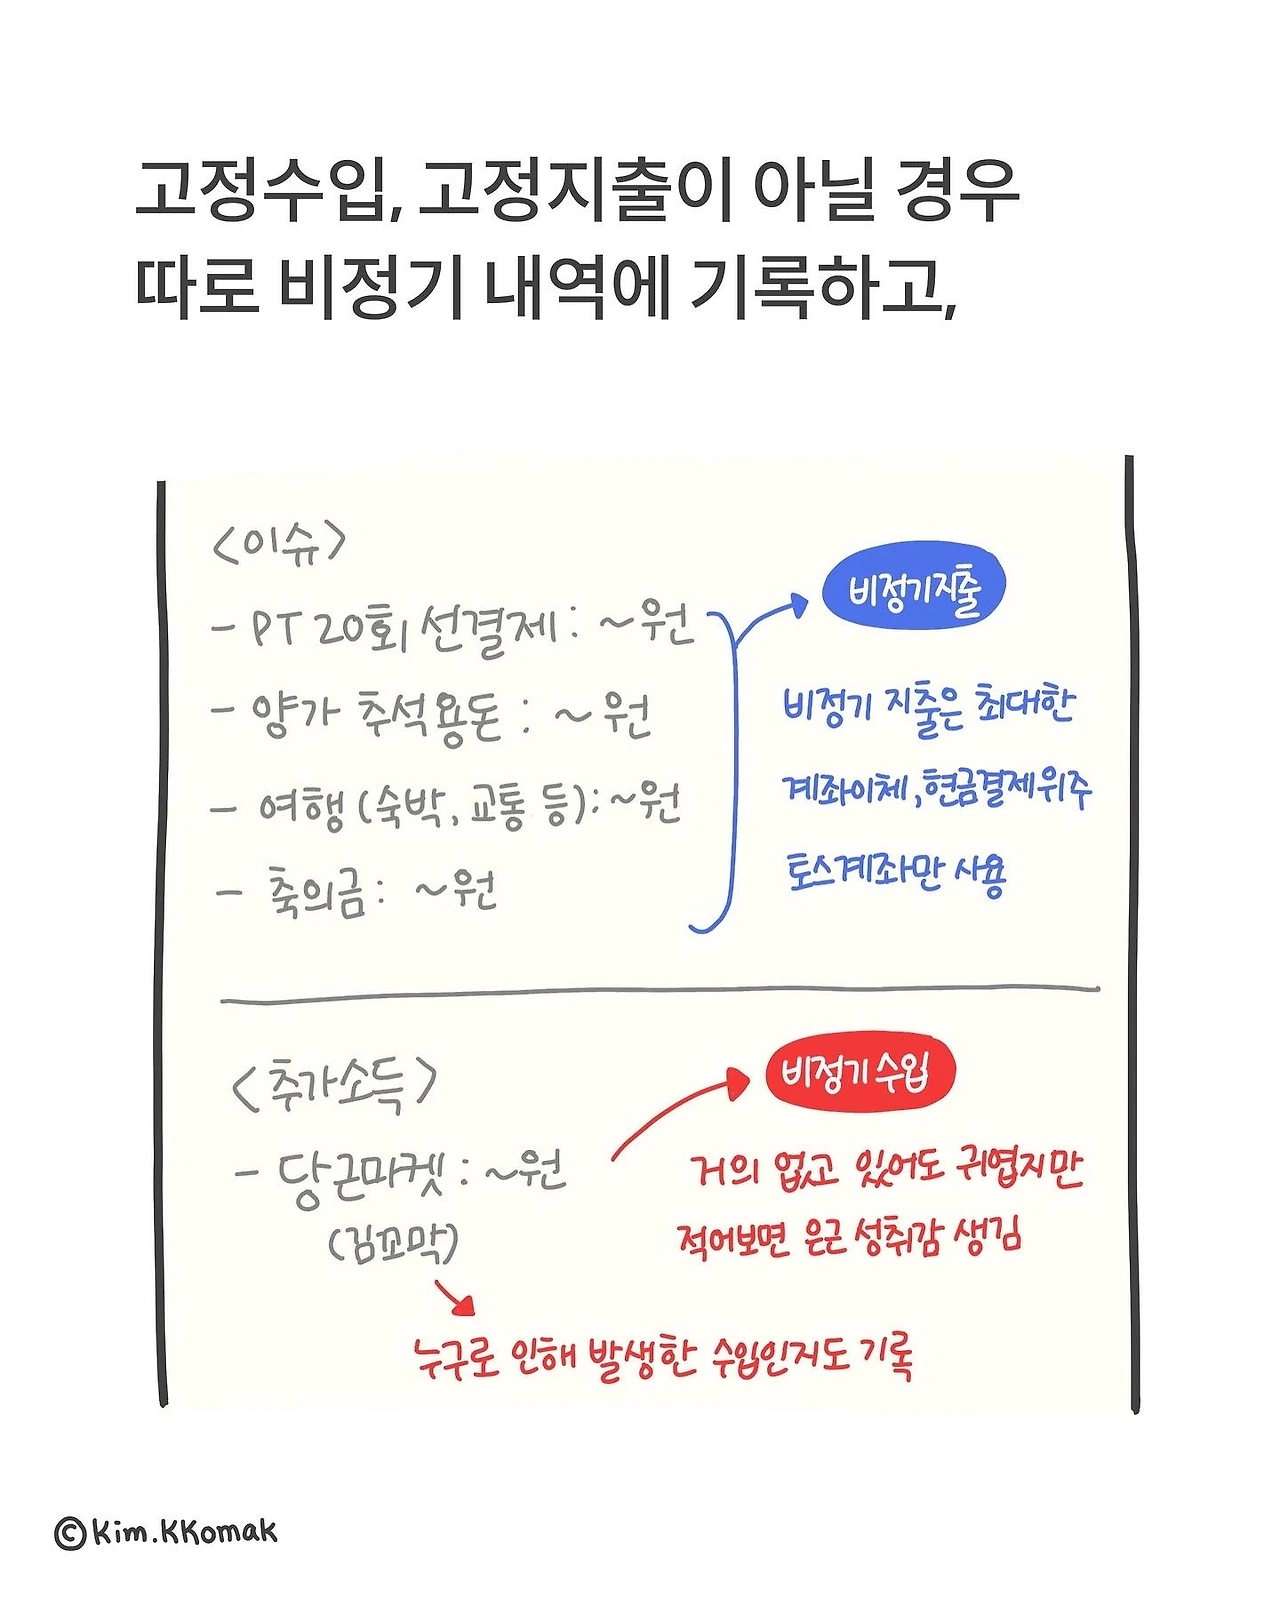 고정수입, 고정지출이 아닐 경우
따로 비정기 내역에 기록하고,
<이슈>
- PT 20회 선결제 : ~원
- 양가 추석용돈 : ~원
- 여행 (숙박, 교통 등) : ~원
- 축의금 : ~원
비정기지출
비정기 지출은 최대한
계좌이체, 현금결제위주
토스계좌만 사용
<추가소득>
- 당근마켓 : ~원
(김꼬막)
비정기수입
거의 없고 있어도 귀엽지만
적어보면 은근 성취감 생김
누구로 인해 발생한 수입인지도 기록
©Kim.KKomak